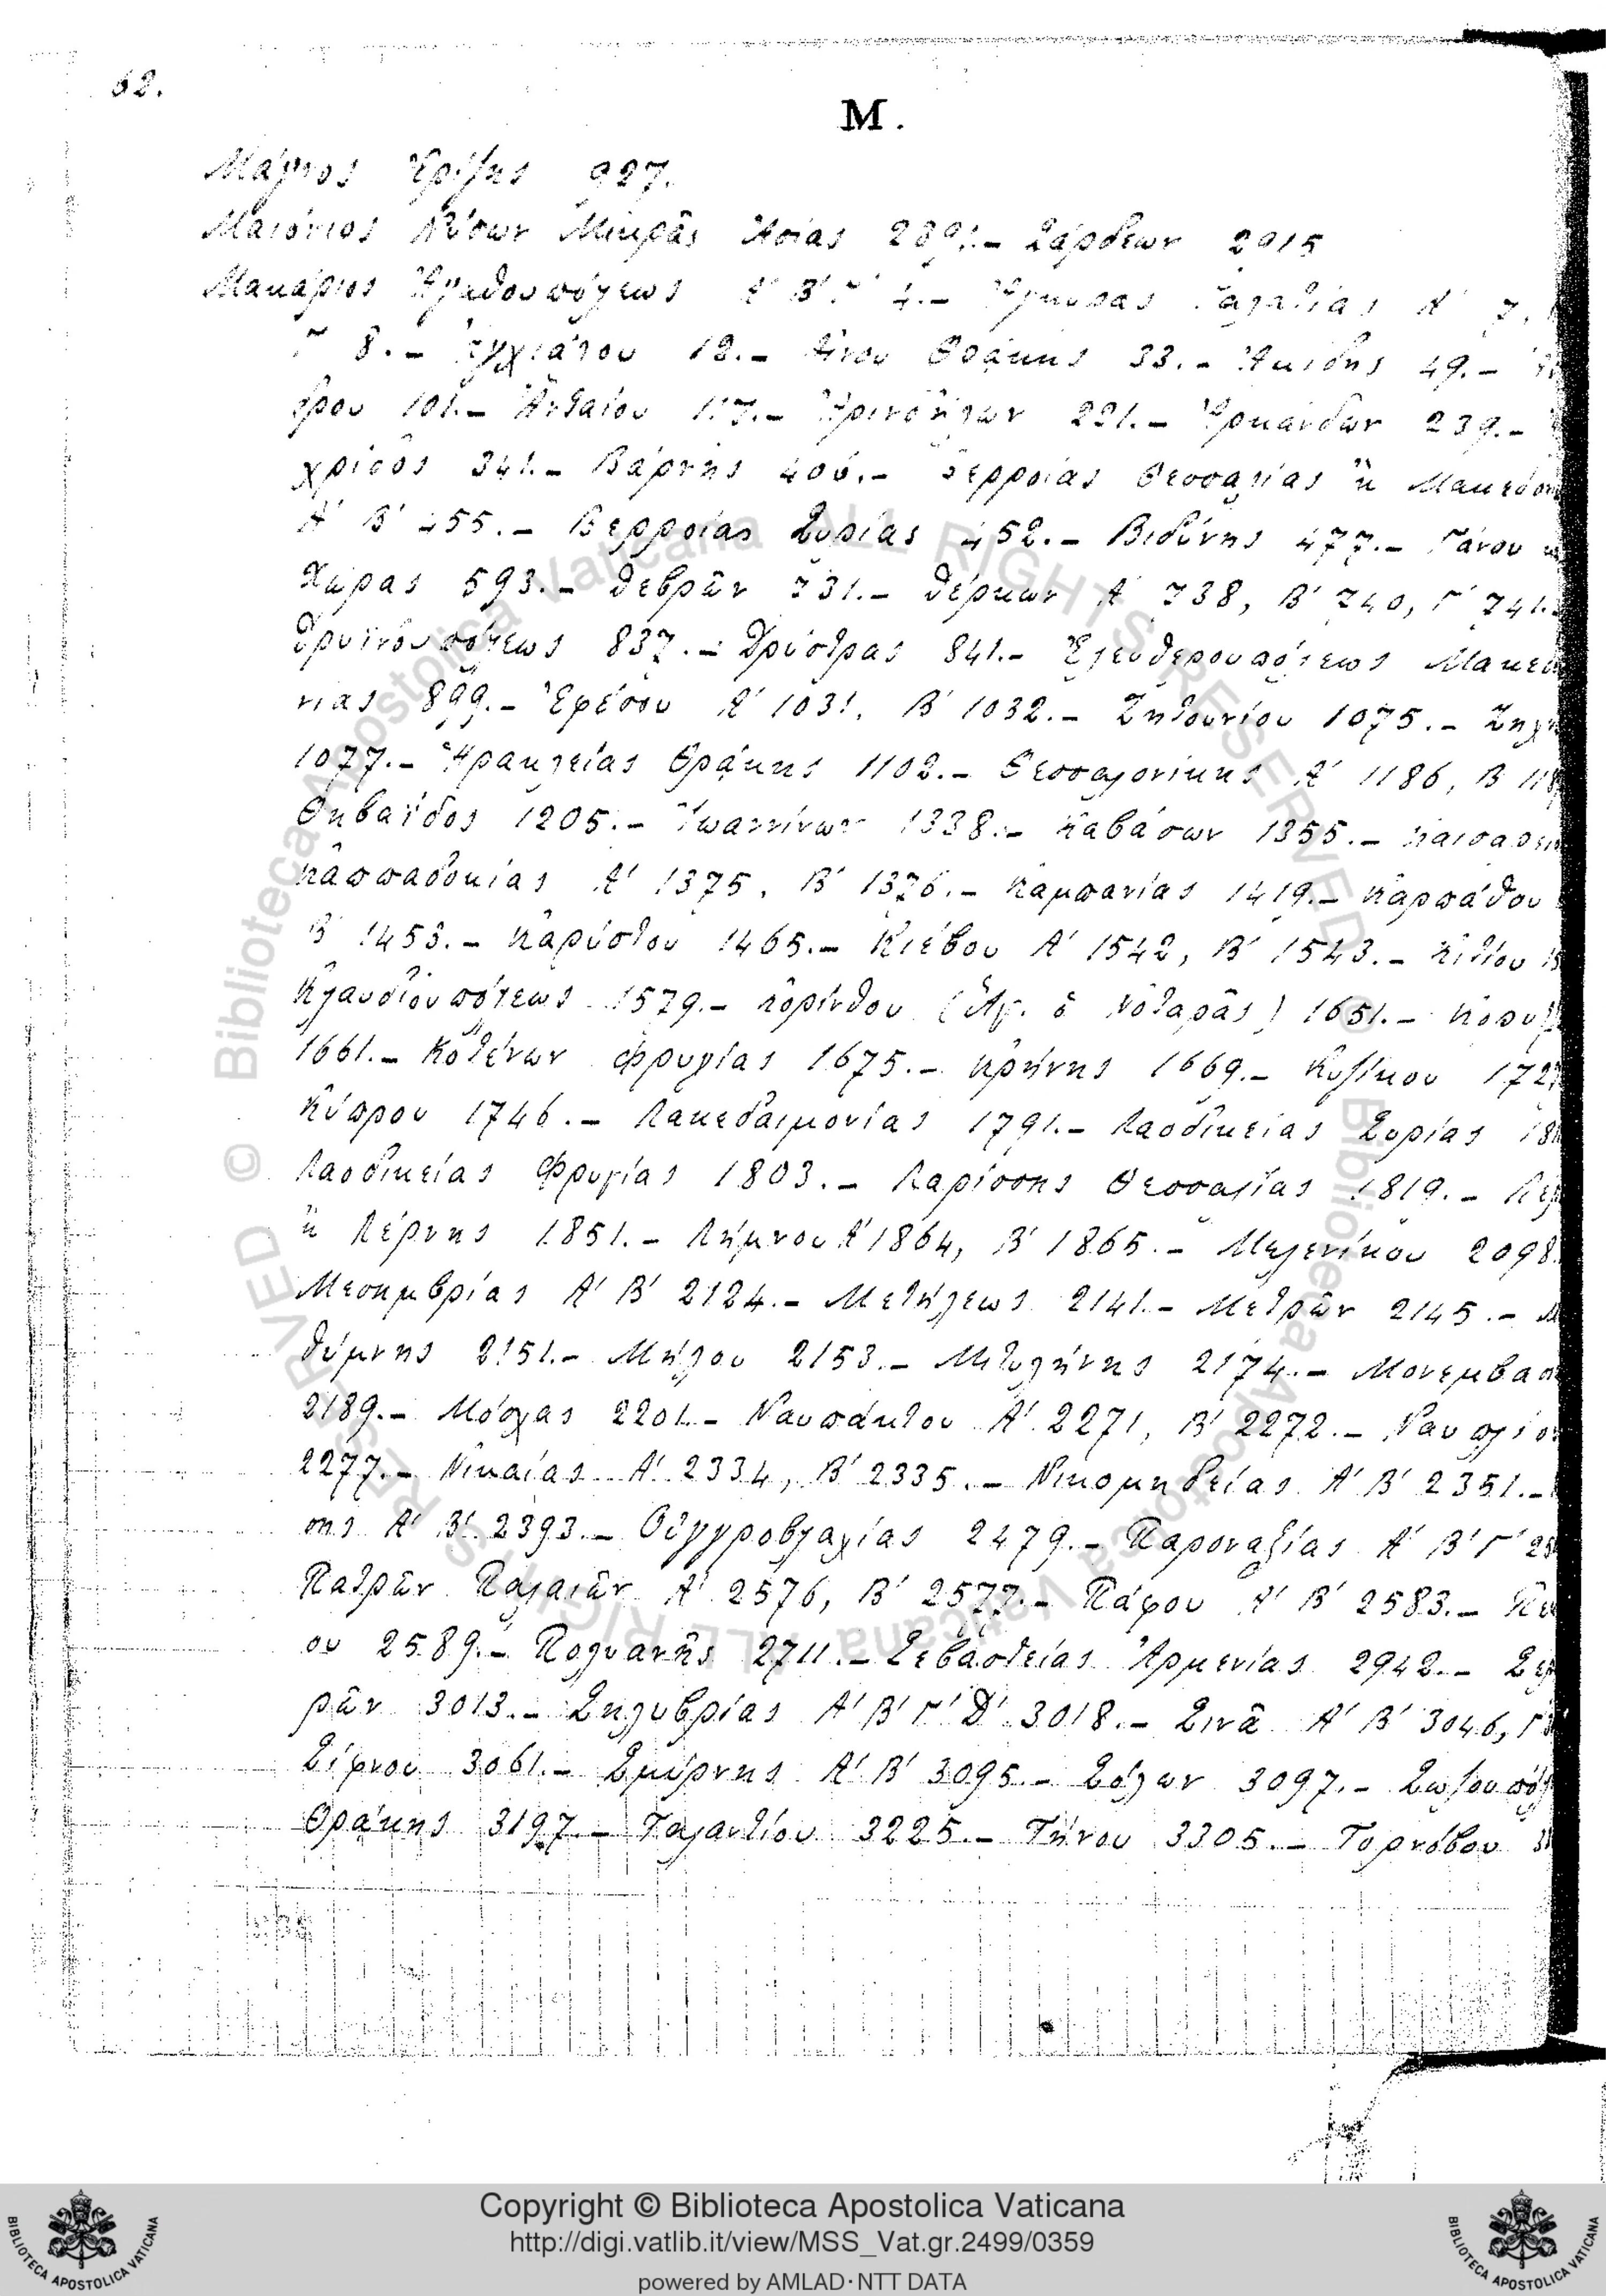 62.
M.
Μάγνος Ἐρίζης 927.
Μαιόνιος Νύσων Μικρᾶς Ἀσίας 2891.– Σάρδεων 2915
Μακάριος Ἀγαθουπόλεως Α΄ Β΄ Γ΄ 4.– Ἀγκύρας Γαλατίας Α΄ 7,
Γ΄ 8.– Ἀγχιάλου 12.– Αἴνου Θράκης 33.– 49.–
δρου 101.– Ἀνταίου 117.– 221.– Ἀρκάνδων 239.–
χρίδος 341.– Βάρνης 406.– Βερροίας Θεσσαλίας ἢ Μακεδον
Α΄ Β΄ 455.– Βερροίας Συρίας 452.– Βιδύνης 477.– Γάνου κ
Χώρας 593.– Δεβρῶν 731.– Δέρκων Α΄ 738, Β΄ 740, Γ΄ 741.–
Δρυϊνουπόλεως 837.– Δρύστρας 841.– Ἐλευθερουπόλεως Μακεδ
νίας 899.– Ἐφέσου Α΄ 1031, Β΄ 1032.– Ζητουνίου 1075.– Ζηλ
1077.– Ἡρακλείας Θράκης 1102.– Θεσσαλονίκης Α΄ 1186, Β΄ 118
Θηβαΐδος 1205.– Ἰωαννίνων 1338.– Καβάσων 1355.– Καισαρεί
Καππαδοκίας Α΄ 1375, Β΄ 1376.– Καμπανίας 1419.– Καρπάθου
Β΄ 1453.– Καρύστου 1465.– Κιέβου Α΄ 1542, Β΄ 1543.– Κιτίου 15
Κλαυδιουπόλεως 1579.– Κορίνθου (Ἅγ. ὁ Νοταρᾶς) 1651.– Κορυ
1661.– Κοτένων Φρυγίας 1675.– Κρήνης 1669.– Κυζίκου 172
Κύπρου 1746.– Λακεδαιμονίας 1791.– Λαοδικείας Συρίας 18
Λαοδικείας Φρυγίας 1803.– Λαρίσσης Θεσσαλίας 1819.– Λε
ἢ Λέρνης 1851.– Λήμνου Α΄ 1864, Β΄ 1865.– Μελενίκου 2098.
Μεσημβρίας Α΄ Β΄ 2124.– Μετήλεως 2141.– Μετρῶν 2145.– Μ
θύμνης 2151.– Μήλου 2153.– Μιτυλήνης 2174.– Μονεμβασ
2189.– Μόσχας 2201.– Ναυπάκτου Α΄ 2271, Β΄ 2272.– Ναυπλίο
2277.– Νικαίας Α΄ 2334, Β΄ 2335.– Νικομηδείας Α΄ Β΄ 2351.–
σης Α΄ Β΄ 2393.– Οὐγγροβλαχίας 2479.– Παροναξίας Α΄ Β΄ Γ΄ 25
Πατρῶν Παλαιῶν Α΄ 2576, Β΄ 2577.– Πάφου Α΄ Β΄ 2583.–
ου 2589.– Πολυανῆς 2711.– Σεβαστείας Ἀρμενίας 2942.– Σε
ρῶν 3013.– Σηλυβρίας Α΄ Β΄ Γ΄ Δ΄ 3018.– Σινᾶ Α΄ Β΄ 3046, Γ΄
Σίφνου 3061.– Σμύρνης Α΄ Β΄ 3095.– Σόλων 3097.– Σωζουπόλ
Θράκης 3197.– Ταλαντίου 3225.– Τήνου 3305.– Τορνόβου 3
© Biblioteca Apostolica Vaticana ALL RIGHTS RESERVED
© Biblioteca Apostolica Vaticana ALL RIGHTS RESERVED
BIBLIOTECA APOSTOLICA VATICANA
Copyright © Biblioteca Apostolica Vaticana
http://digi.vatlib.it/view/MSS_Vat.gr.2499/0359
powered by AMLAD·NTT DATA
BIBLIOTECA APOSTOLICA VATICANA